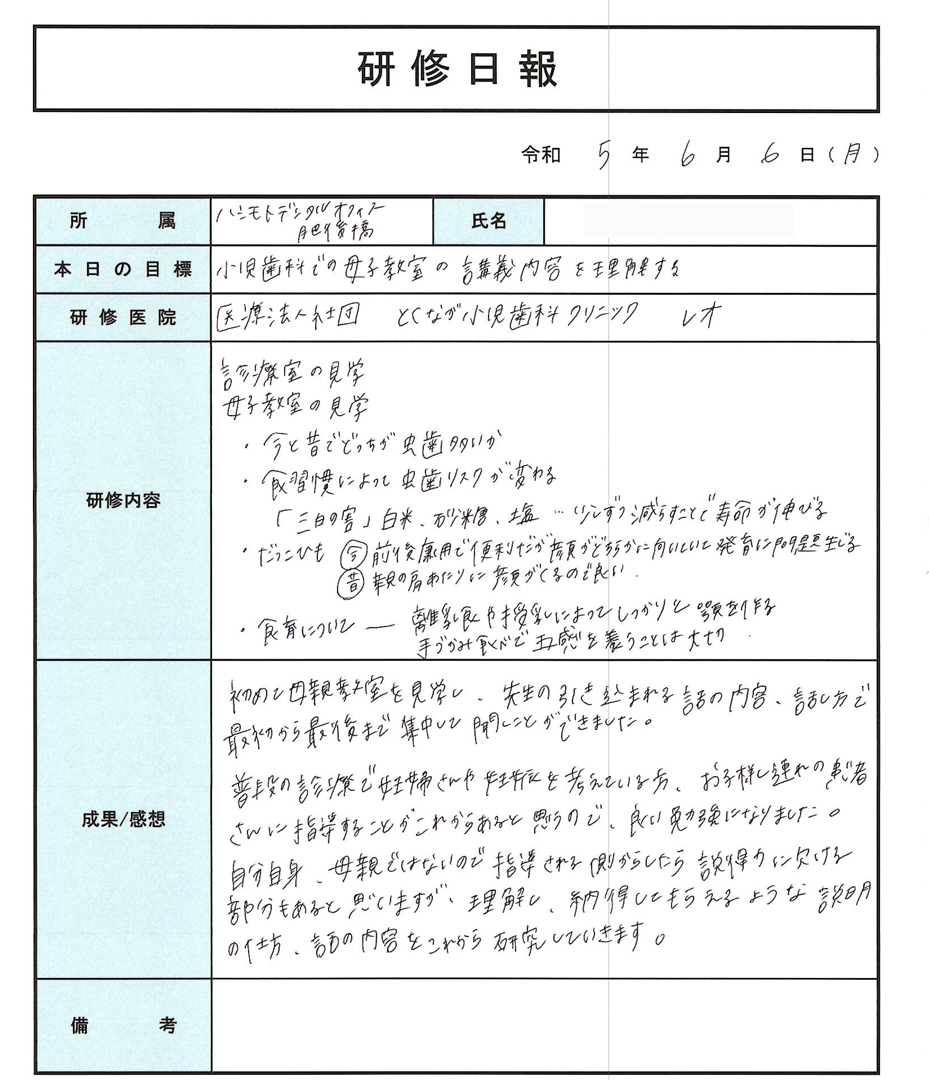 研修日報
令和 5 年 6 月 6 日 (月)
所属 ハシモトデンタルオフィス 氏名
肥後橋
本日の目標 小児歯科での母子教室の講義内容を理解する
研修医院 医療法人社団 とくなが小児歯科クリニック レオ
研修内容
診療室の見学
母子教室の見学
・今と昔でどっちが虫歯多いか
・食習慣によって虫歯リスクが変わる
「三白の害」白米、砂糖、塩…少しずつ減らすことで寿命が伸びる
・だっこひも 今 前後兼用で便利だが顔がどちらかに向いていて発育に問題生じる
昔 親の肩あたりに顔がくるので良い.
・食育について ― 離乳食や授乳によってしっかりと顎を作る
手づかみ食べで五感を養うことは大切.
成果/感想
初めて母親教室を見学し、先生の引き込まれる話の内容、話し方で
最初から最後まで集中して聞くことができました。
普段の診療で妊婦さんや妊娠を考えている方、お子様し連れの患者
さんに指導することがこれからあると思うので、良い勉強になりました。
自分自身、母親ではないので指導される側からしたら説得力に欠ける
部分もあると思いますが、理解し、納得してもらえるような説明
の仕方、話の内容をこれから研究していきます。
備考